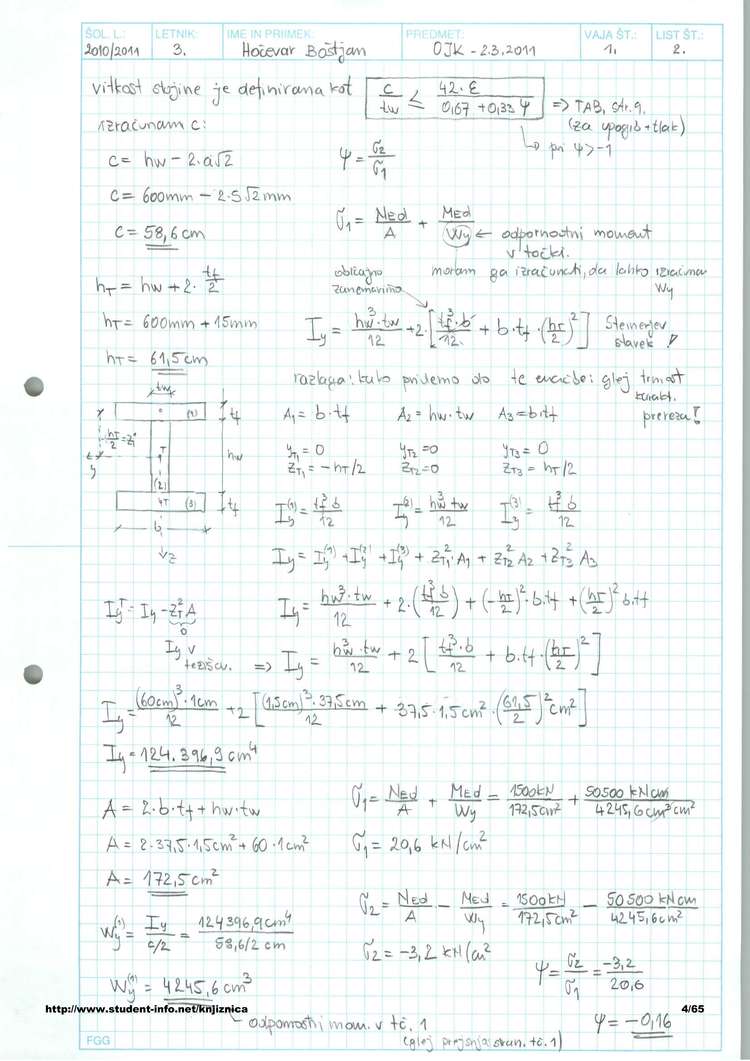 ŠOL. L.: LETNIK: IME IN PRIIMEK: PREDMET: VAJA ŠT.: LIST ŠT.:
2010/2011 3. Hočevar Boštjan OJK - 2.3.2011 1. 2.
vitkost stojine je definirana kot c/tw ≤ 42·ε / (0,67 + 0,33 ψ) => TAB, str. 9.
(za upogib + tlak)
↳ pri ψ > -1
izračunam c:
c = hw − 2·a√2 ψ = σ2/σ1
c = 600mm − 2·5√2 mm
c = 58,6 cm
σ1 = NEd/A + MEd/Wy ← odpornostni moment v točki.
moram ga izračunati, da lahko izračunam Wy
hT = hw + 2· tf/2
hT = 600mm + 15mm
hT = 61,5 cm
običajno zanemarimo
Iy = hw³·tw/12 + 2·[tf³·b/12 + b·tf·(hT/2)²] Steinerjev stavek!
razlaga: kako pridemo do te enačbe: glej trmost karakt. prereza!
tw
(1) tf
hT/2 = z1
T hw
y
(2)
(3) tf
b
z
A1 = b·tf A2 = hw·tw A3 = b·tf
yT1 = 0 yT2 = 0 yT3 = 0
zT1 = −hT/2 zT2 = 0 zT3 = hT/2
Iy(1) = tf³ b/12 Iy(2) = hw³ tw/12 Iy(3) = tf³ b/12
Iy = Iy(1) + Iy(2) + Iy(3) + zT1² A1 + zT2² A2 + zT3² A3
IyT = Iy − zT² A
0
Iy v težišču.
Iy = hw³·tw/12 + 2·(tf³ b/12) + (−hT/2)²·b·tf + (hT/2)² b·tf
=> Iy = hw³·tw/12 + 2 [tf³·b/12 + b·tf·(hT/2)²]
Iy = (60cm)³·1cm/12 + 2 [(1,5cm)³·37,5cm/12 + 37,5·1,5cm²·(61,5/2)² cm²]
Iy = 124.396,9 cm⁴
A = 2·b·tf + hw·tw
A = 2·37,5·1,5cm² + 60·1cm²
A = 172,5 cm²
Wy(1) = Iy/(c/2) = 124396,9cm⁴ / (58,6/2 cm)
Wy(1) = 4245,6 cm³
odpornostni mom. v tč. 1
(glej prejšnja stran. tč. 1)
σ1 = NEd/A + MEd/Wy = 1500kN/172,5cm² + 50500 kNcm/4245,6 cm³cm²
σ1 = 20,6 kN/cm²
σ2 = NEd/A − MEd/Wy = 1500kN/172,5cm² − 50500 kNcm/4245,6cm²
σ2 = −3,2 kN/cm²
ψ = σ2/σ1 = −3,2/20,6
ψ = −0,16
http://www.student-info.net/knjiznica 4/65
FGG